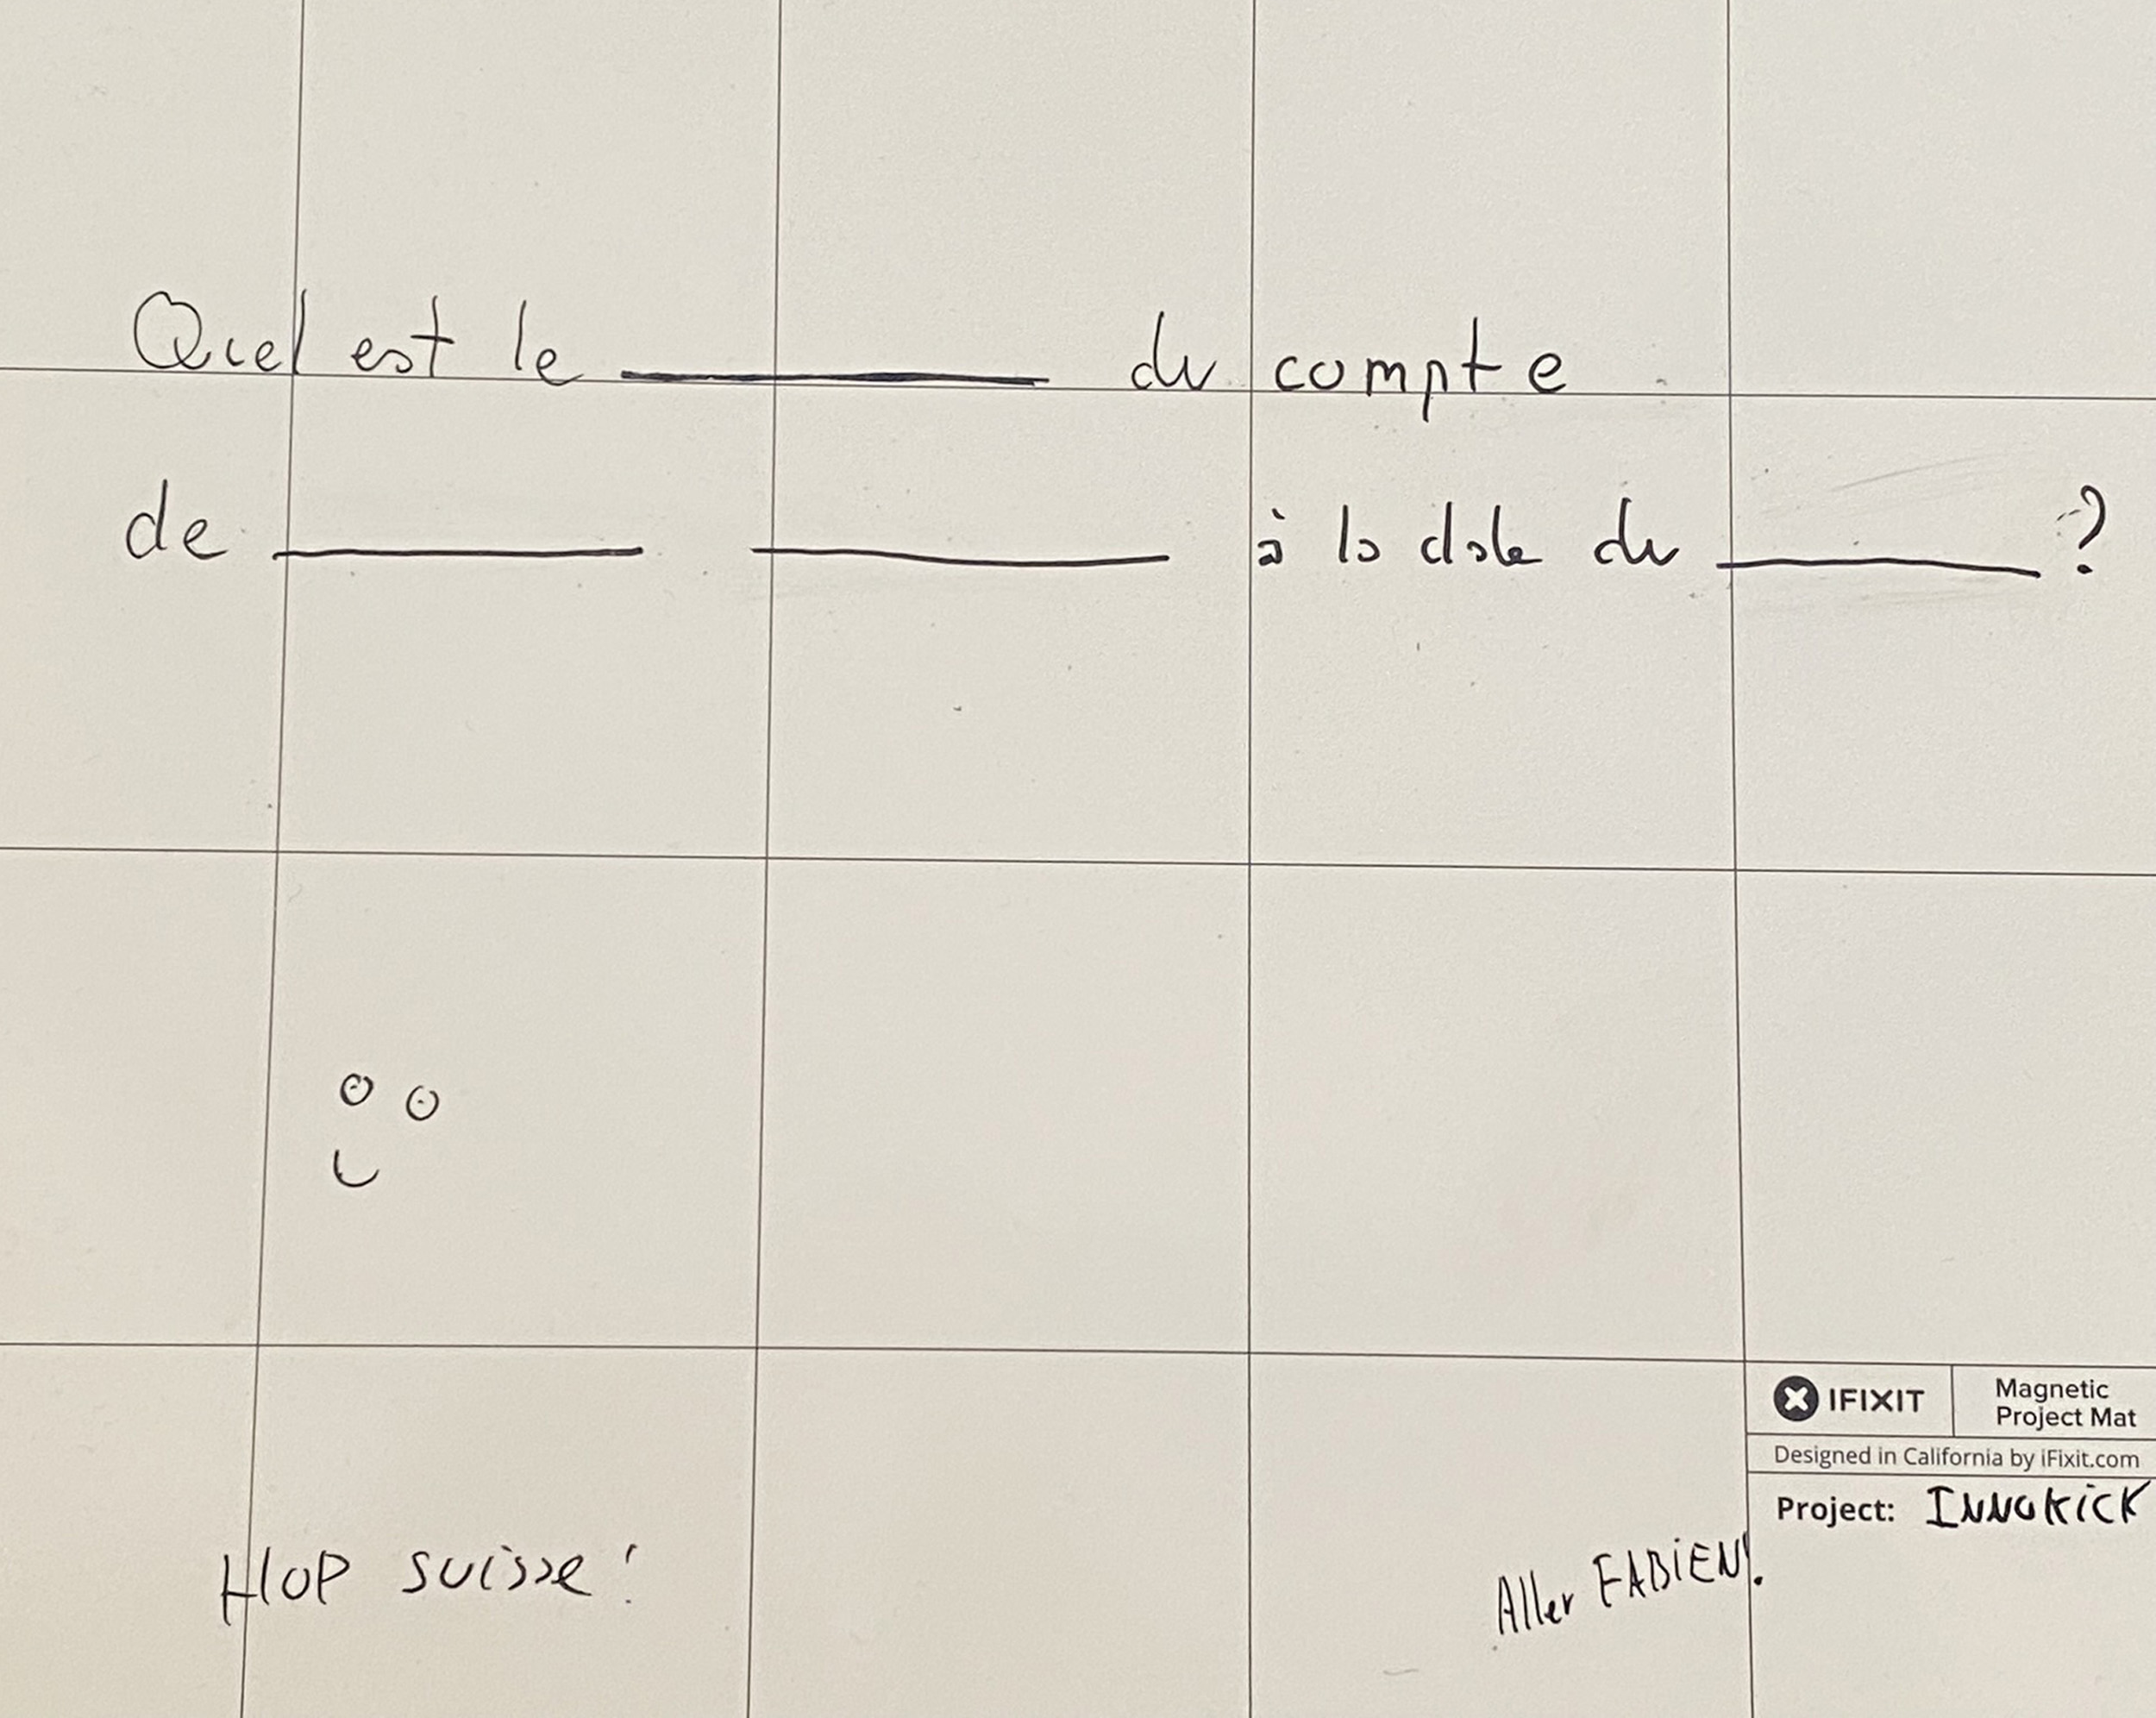 Quel est le ________ du compte
de ________ ________ à la date du ________ ?
HOP suisse !
Aller FABIEN!
IFIXIT
Magnetic
Project Mat
Designed in California by iFixit.com
Project: INNOKICK